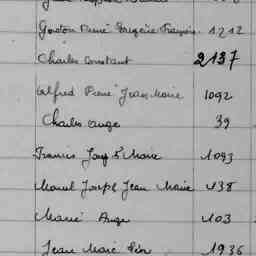 Gaston René Grégoire François 1212
Charles Constant 2137
Alfred Pierre Jean Marie 1092
Charles Ange 39
Francis Marie 1093
Marcel Joseph Jean Marie 438
Marie Ange 403
Jean Marie 1936